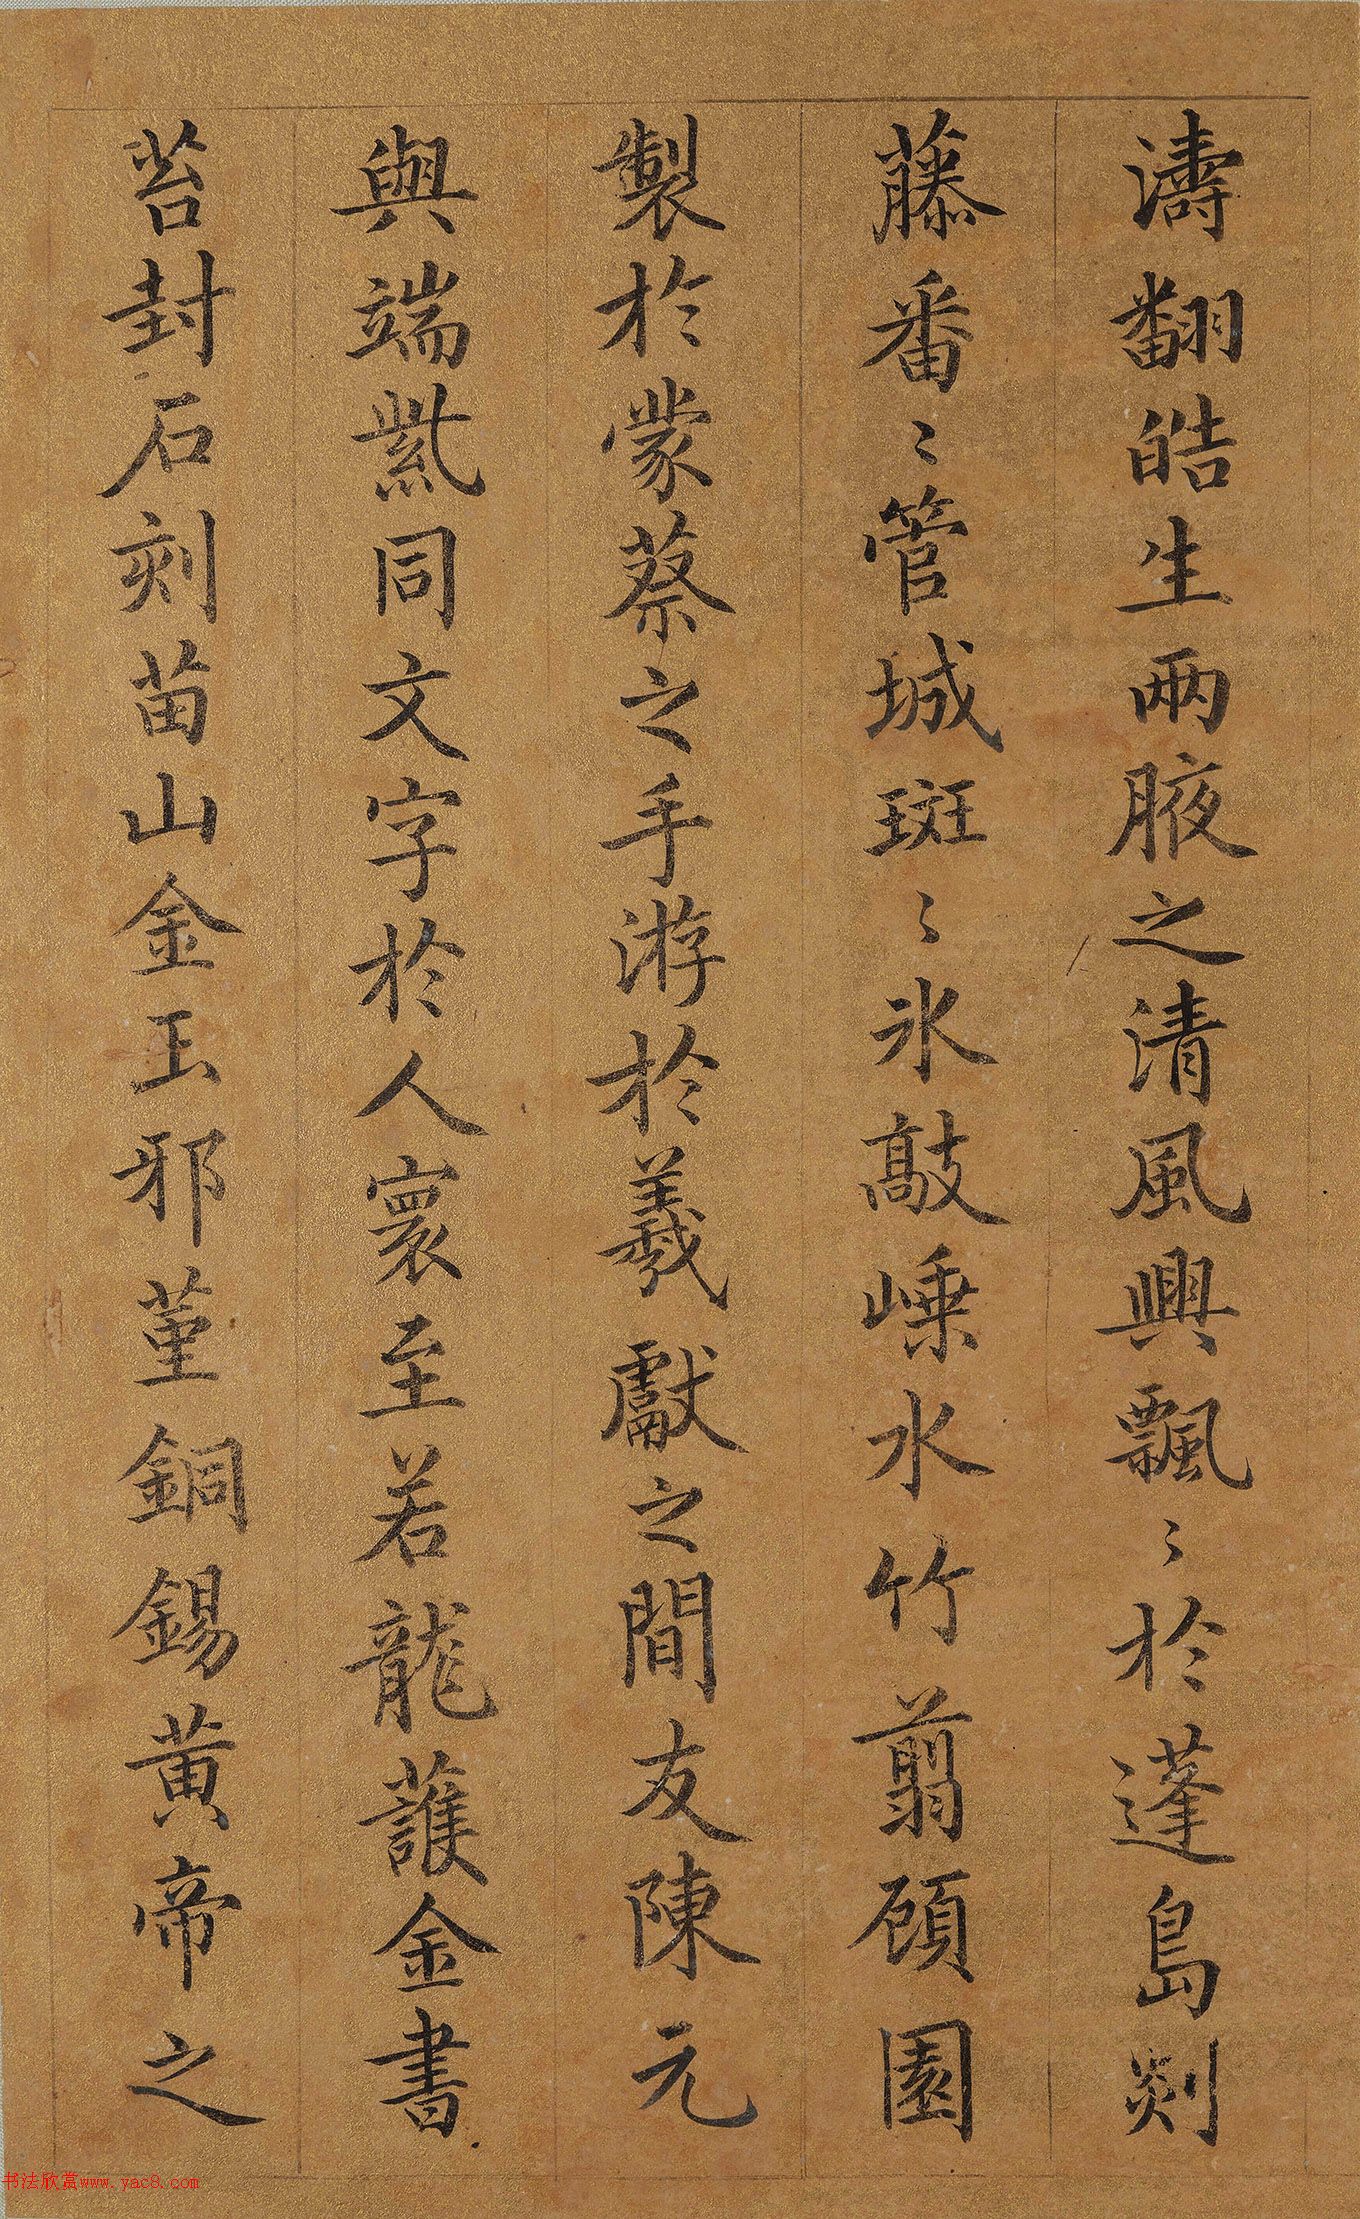 濤翻皓生兩腋之清風興飄〻於蓬島剡
藤番〻管城斑〻氷敲嵊水竹翦頋園
製於蒙蔡之手游於羲獻之間友陳元
與端紫同文字於人寰至若龍護金書
苔封石刻苗山金玉邪菫銅錫黃帝之
书法欣赏www.yac8.com